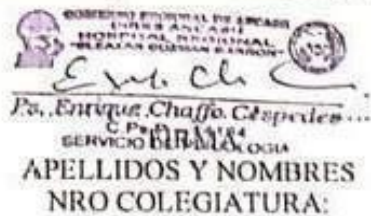 GOBIERNO REGIONAL DE ANCASH
HOSPITAL REGIONAL
"ELEAZAR GUZMAN BARRON"
Ps. Enrique Chaffo Céspedes
C.Ps.P.
SERVICIO DE PSICOLOGIA
APELLIDOS Y NOMBRES
NRO COLEGIATURA: